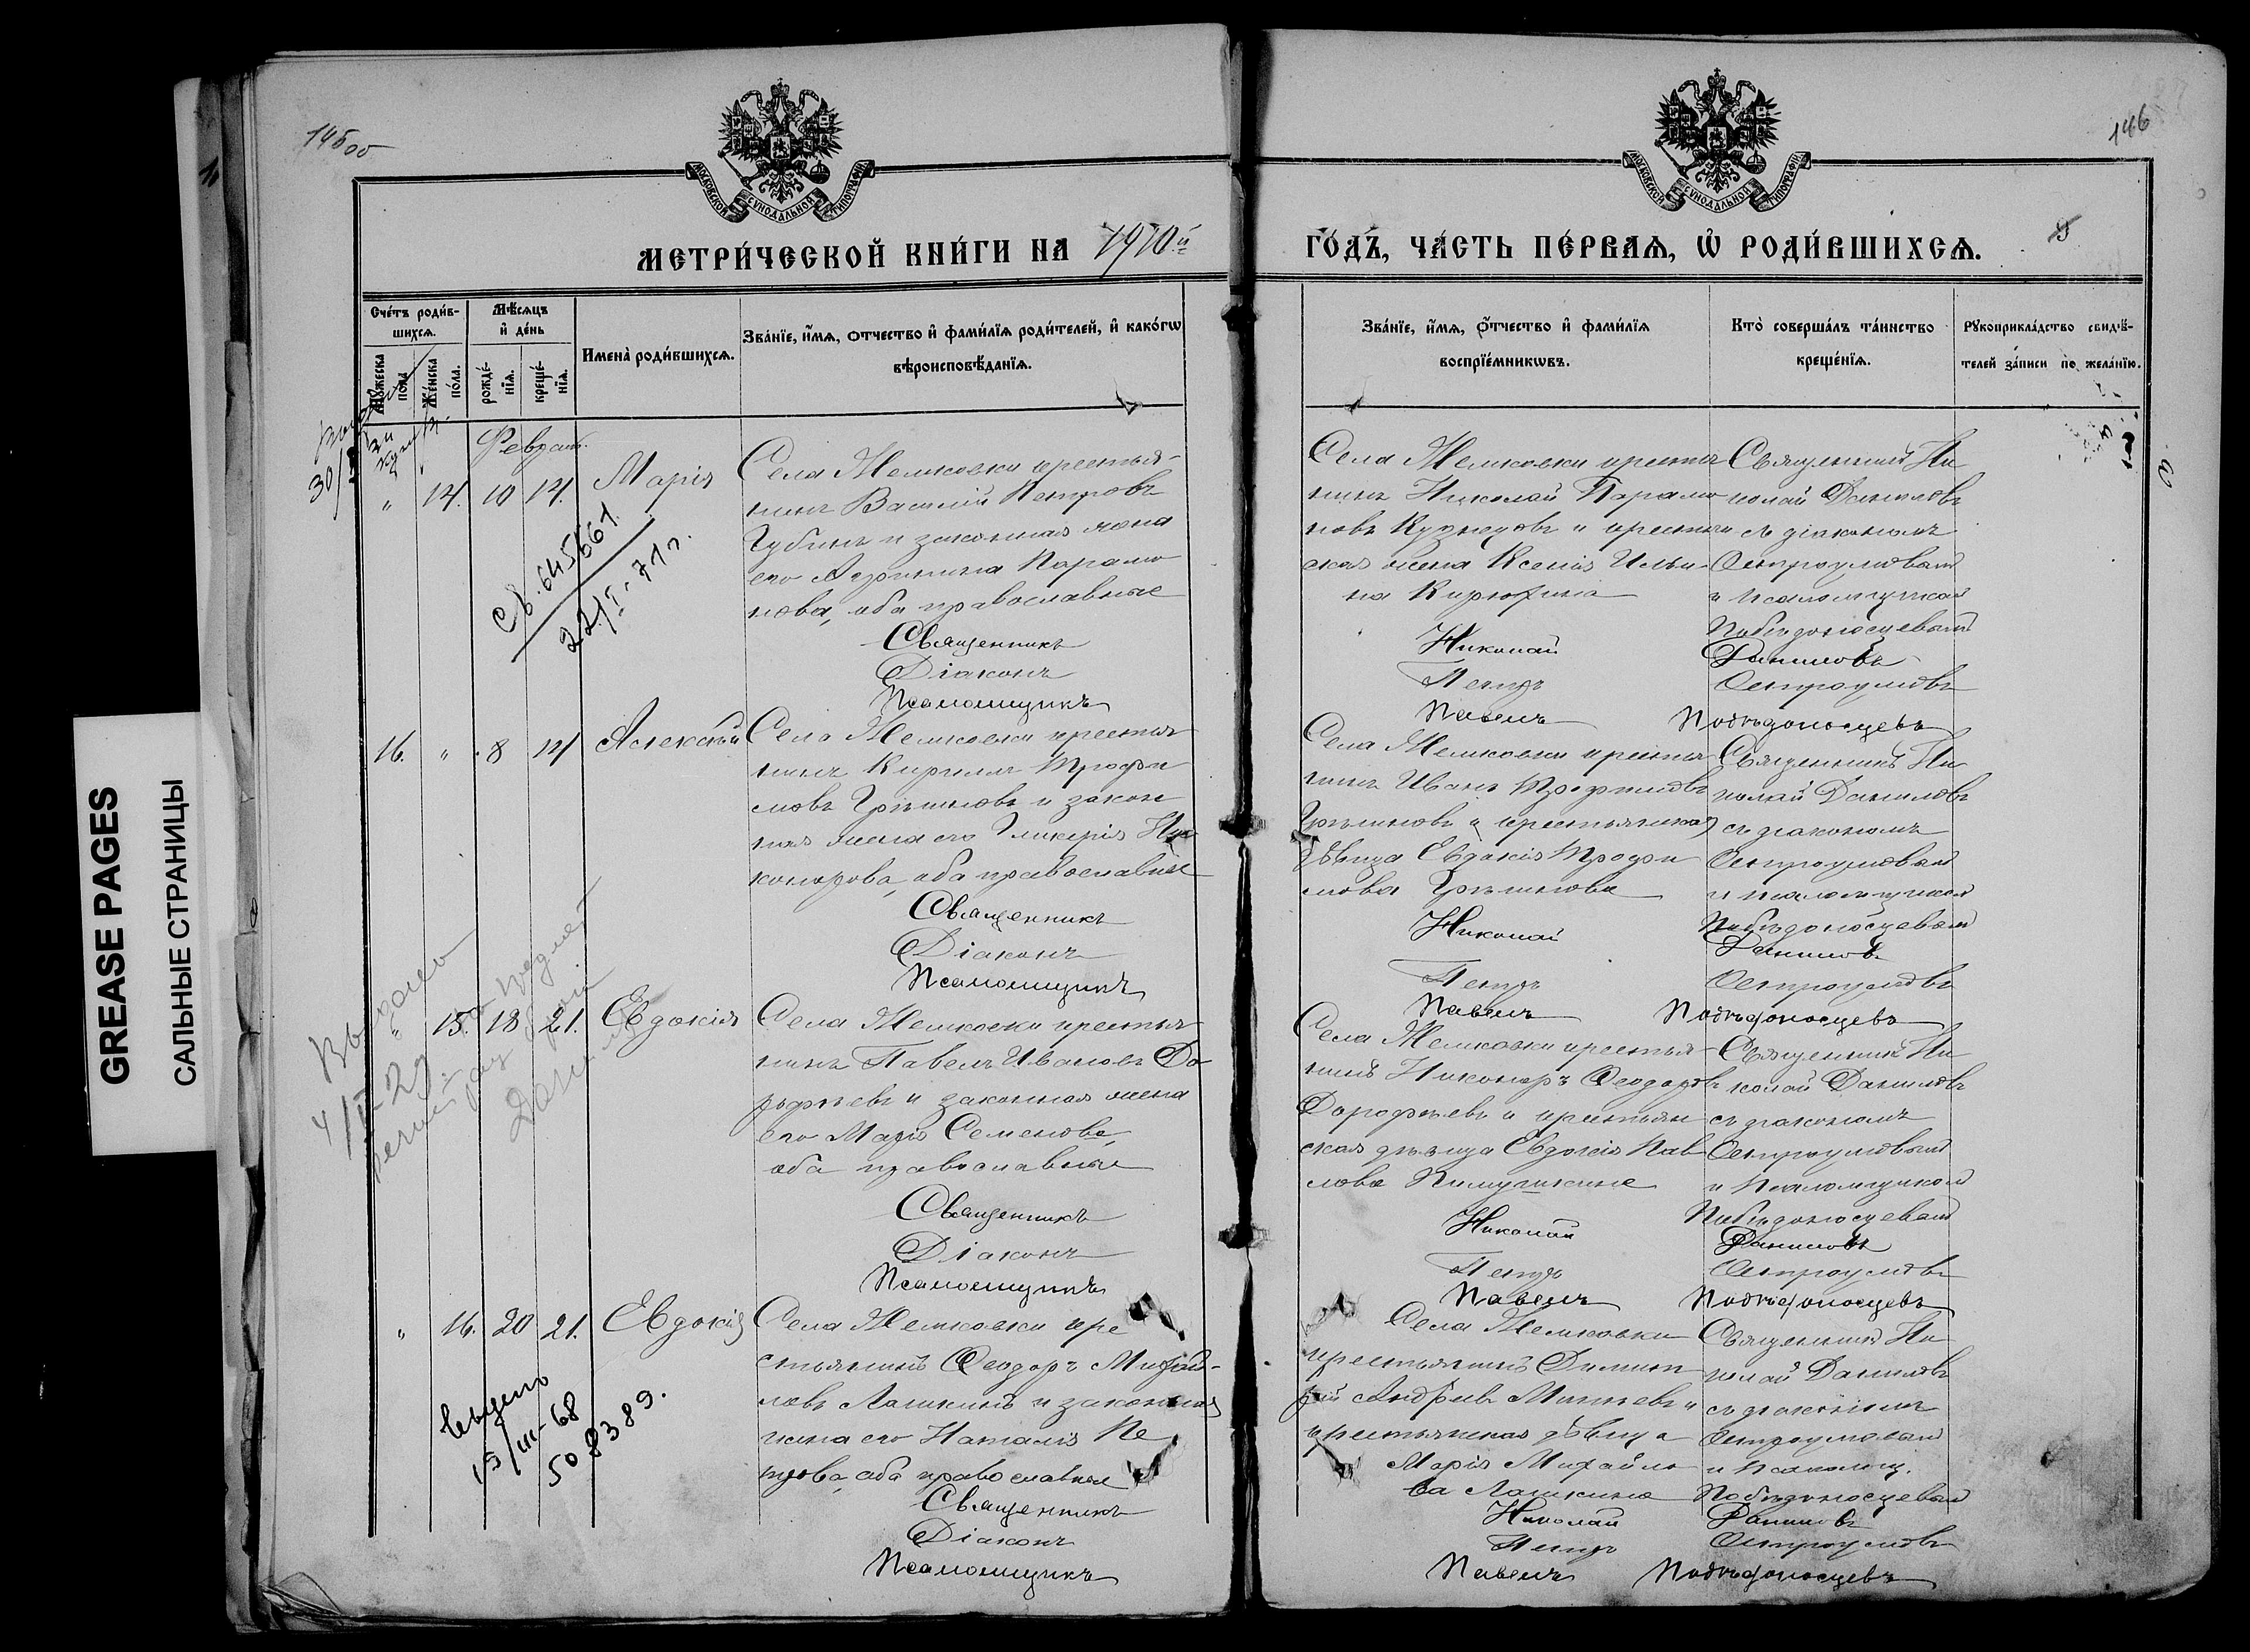 GREASE PAGES
САЛЬНЫЕ СТРАНИЦЫ
145об
146
МОСКОВСКОЙ СѴНОДАЛЬНОЙ ТИПОГРАФІИ
МОСКОВСКОЙ СѴНОДАЛЬНОЙ ТИПОГРАФІИ
МЕТРИ́ЧЕСКОЙ КНИ́ГИ НА 1910й
ГО́ДЪ, ЧА́СТЬ ПЕ́РВАѦ, Ѡ҆ РОДИ́ВШИХСѦ.
Сче́тъ роди́в-
шихсѧ.
Мꙋ́жеска
пола
Же́нска
по́ла.
Мѣ́сѧцъ
и҆ де́нь
рожде́-
нїѧ.
креще́-
нїѧ.
Имена̀ роди́вшихсѧ.
Зва́нїе, и҆́мѧ, ѻ҆тчество и҆ фами́лїѧ роди́телей, и҆ како́гѡ
вѣроисповѣ́данїѧ.
Зва́нїе, и҆́мѧ, ѻ҆́тчество и҆ фами́лїѧ
воспрїе́мникѡвъ.
Кто̀ соверша́лъ та́инство
креще́нїѧ.
Рꙋкоприкла́дство свидѣ́-
телей за́писи по жела́нїю.
Февраль.
" 14. 10 14. Марія
Села Жемковки крестья-
нинъ Василій Петровъ
Губинъ и законная жена
его Агрипина Парамо
нова, оба православные
Священникъ
Діаконъ
Псаломщикъ
Св. 645661
22/I-71г.
Села Жемковки крестья
нинъ Николай Парамо
новъ Кузнецовъ и крестьян
ская жена Ксенія Ильи-
на Кирюхина
Николай
Петръ
Павелъ
Священникъ Ни
колай Даниловъ
съ діакономъ
Остроумовым
и псаломщиком
Побѣдоносцевым
Даниловъ
Остроумовъ
Побѣдоносцевъ
16. " 8 14 Алексѣй
Села Жемковки крестья
нинъ Кириллъ Трофи
мовъ Грѣшновъ и закон
ная жена его Гликерія Ни
конорова, оба православные
Священникъ
Діаконъ
Псаломщикъ
Села Жемковки крестья
нинъ Иванъ Трофимовъ
Грѣшновъ и крестьянская
дѣвица Евдокія Трофи
мова Грѣшнова
Николай
Петръ
Павелъ
Священникъ Ни
колай Даниловъ
съ діакономъ
Остроумовым
и псаломщиком
Побѣдоносцевым
Даниловъ
Остроумовъ
Побѣдоносцевъ
" 15. 18 21. Евдокія
Села Жемковки крестья
нинъ Павелъ Ивановъ До
рофѣевъ и законная жена
его Марія Семенова,
оба православные
Священникъ
Діаконъ
Псаломщикъ
Села Жемковки крестья-
нинъ Никоноръ Ѳеодоровъ
Дорофѣевъ и крестьян
ская дѣвица Евдокія Пав
лова
Николай
Петръ
Павелъ
Священникъ Ни
колай Даниловъ
съ діакономъ
Остроумовым
и Псаломщиком
Побѣдоносцевым
Даниловъ
Остроумовъ
Побѣдоносцевъ
" 16. 20 21. Евдокія
Села Жемковки кре
стьянинъ Ѳеодоръ Михай-
ловъ Лашкинъ и законная
жена его Наталія Пе
трова, оба православные
Священникъ
Діаконъ
Псаломщикъ
15/III-68
508389.
Села Жемковки
крестьянинъ Димит
рій Андреевъ и
крестьянская дѣвица
Марія Михайло
ва Лашкина
Николай
Петръ
Павелъ
Священникъ Ни
колай Даниловъ
съ діакономъ
Остроумовым
и Псаломщ.
Побѣдоносцевым
Даниловъ
Остроумовъ
Побѣдоносцевъ